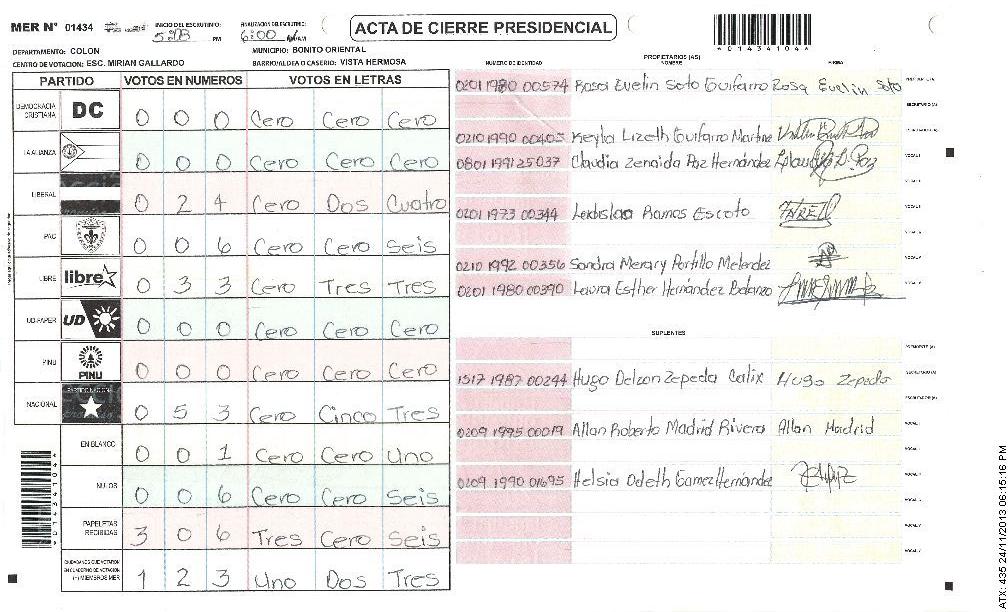 MER N° 01434 INICIO DEL ESCRUTINIO: PM FINALIZACION DEL ESCRUTINIO: 6:00 ACTA DE CIERRE PRESIDENCIAL 01434104
DEPARTAMENTO: COLON MUNICIPIO: BONITO ORIENTAL
CENTRO DE VOTACION: ESC. MIRIAN GALLARDO BARRIO/ALDEA O CASERIO: VISTA HERMOSA
PARTIDO VOTOS EN NUMEROS VOTOS EN LETRAS
DEMOCRACIA CRISTIANA DC 0 0 0 Cero Cero Cero
LA ALIANZA 0 0 0 Cero Cero Cero
LIBERAL 0 2 4 Cero Dos Cuatro
PAC 0 0 6 Cero Cero Seis
LIBRE libre 0 3 3 Cero Tres Tres
UD-FAPER UD 0 0 0 Cero Cero Cero
PINU PINU 0 0 0 Cero Cero Cero
NACIONAL 0 5 3 Cero Cinco Tres
EN BLANCO 0 0 1 Cero Cero Uno
NULOS 0 0 6 Cero Cero Seis
PAPELETAS RECIBIDAS 3 0 6 Tres Cero Seis
CIUDADANOS QUE VOTARON EN CUADERNO DE VOTACION (+) MIEMBROS MER 1 2 3 Uno Dos Tres
PROPIETARIOS (AS)
NUMERO DE IDENTIDAD NOMBRE FIRMA
0201 1980 00574 Rosa Evelin Soto Guifarro Rosa Evelin Soto
0210 1990 00405 Keylia Lizeth Guifarro Martine
0801 1991 25037 Claudia Zenaida Paz Hernández
0201 1973 00344 Ramos Escoto
0210 1992 00356 Sandra Merary Portillo Melendez
0201 1980 00390 Laura Esther Hernández
SUPLENTES
1517 1987 00244 Hugo Delzon Zepeda Calix Hugo Zepeda
0209 1995 00019 Allan Roberto Madrid Rivera Allan Madrid
0209 1990 01695 Helsia Odeth Gamez Hernández
01434104
ATX: 435 24/11/2013 06:15:16 PM